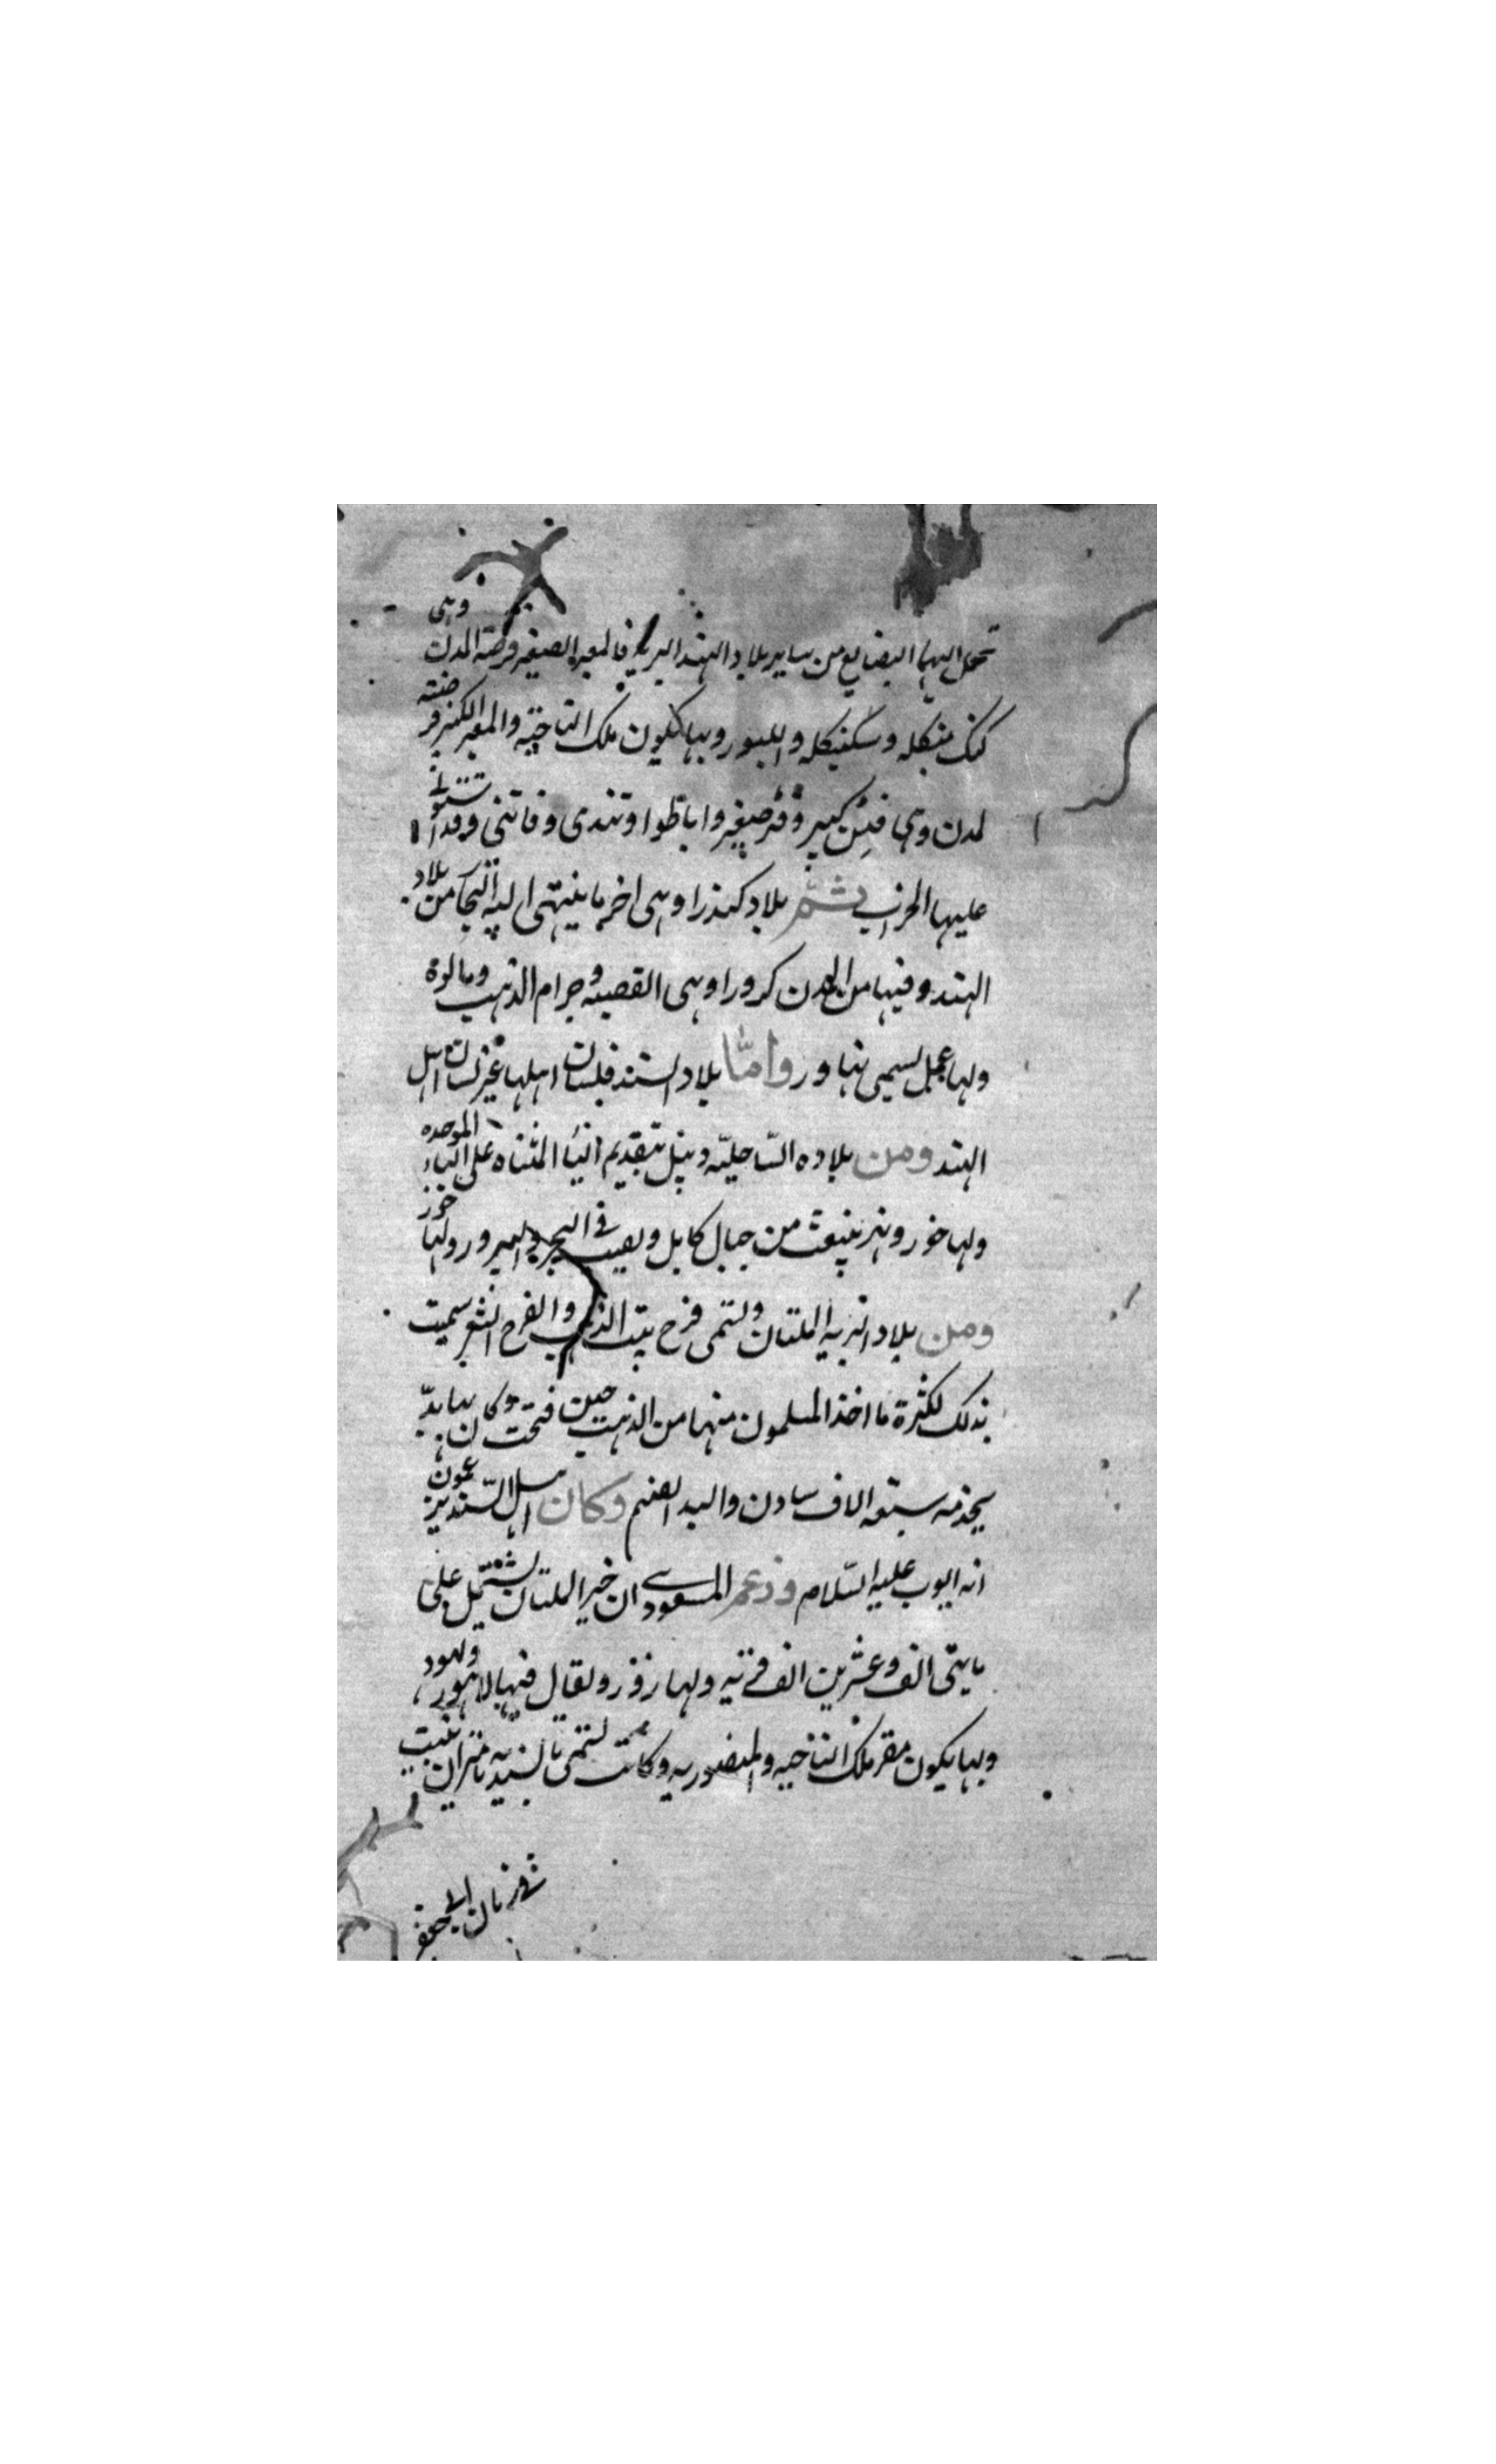 تحمل اليها البضايع من ساير بلاد الهند البرية فالمعبر الصغير فرضة المدن وهي
كنك منكله وسكنيكله والليبور وبها يكون ملك الناحية والمعبر الكبير فرضته
لمدن وهي فتن كبير وفتن صغير واباطوا وتندى وفاتنى وقد استولى
عليها الخراب ثم بلاد كندرا وهي اخر ما ينتهى اليه التجار من بلاد
الهند وفيها من المدن كرورا وهي القصبه وجرام الذهب ومالوة
ولها عمل يسمى نهاور واما بلاد السند فلسان اهلها غير لسان اهل
الهند ومن بلاده الساحلية ديبل بتقديم الياء المثناه على الباء الموحده
ولها خور ونهر ينبعث من جبال كابل ويصب في البحر والبيرور ولها خور
ومن بلاد البريه الملتان وتسمى فرج بيت الذهب والفرج الثغر سميت
بذلك لكثرة ما اخذ المسلمون منها من الذهب حين فتحت وكان بها بد
يخدمه سبعة الاف سادن والبد الصنم وكان اهل السند يزعمون
انه ايوب عليه السلام وزعم المسعودي ان خبر الملتان يشتمل على
مايتى الف وعشرين الف قرية ولها رزور ولهور ويقال فيها لاهور
وبها يكون مقر ملك الناحيه والمنصوريه وكانت تسمى بالسندية باميران بنيت
في زمان ابي جعفر